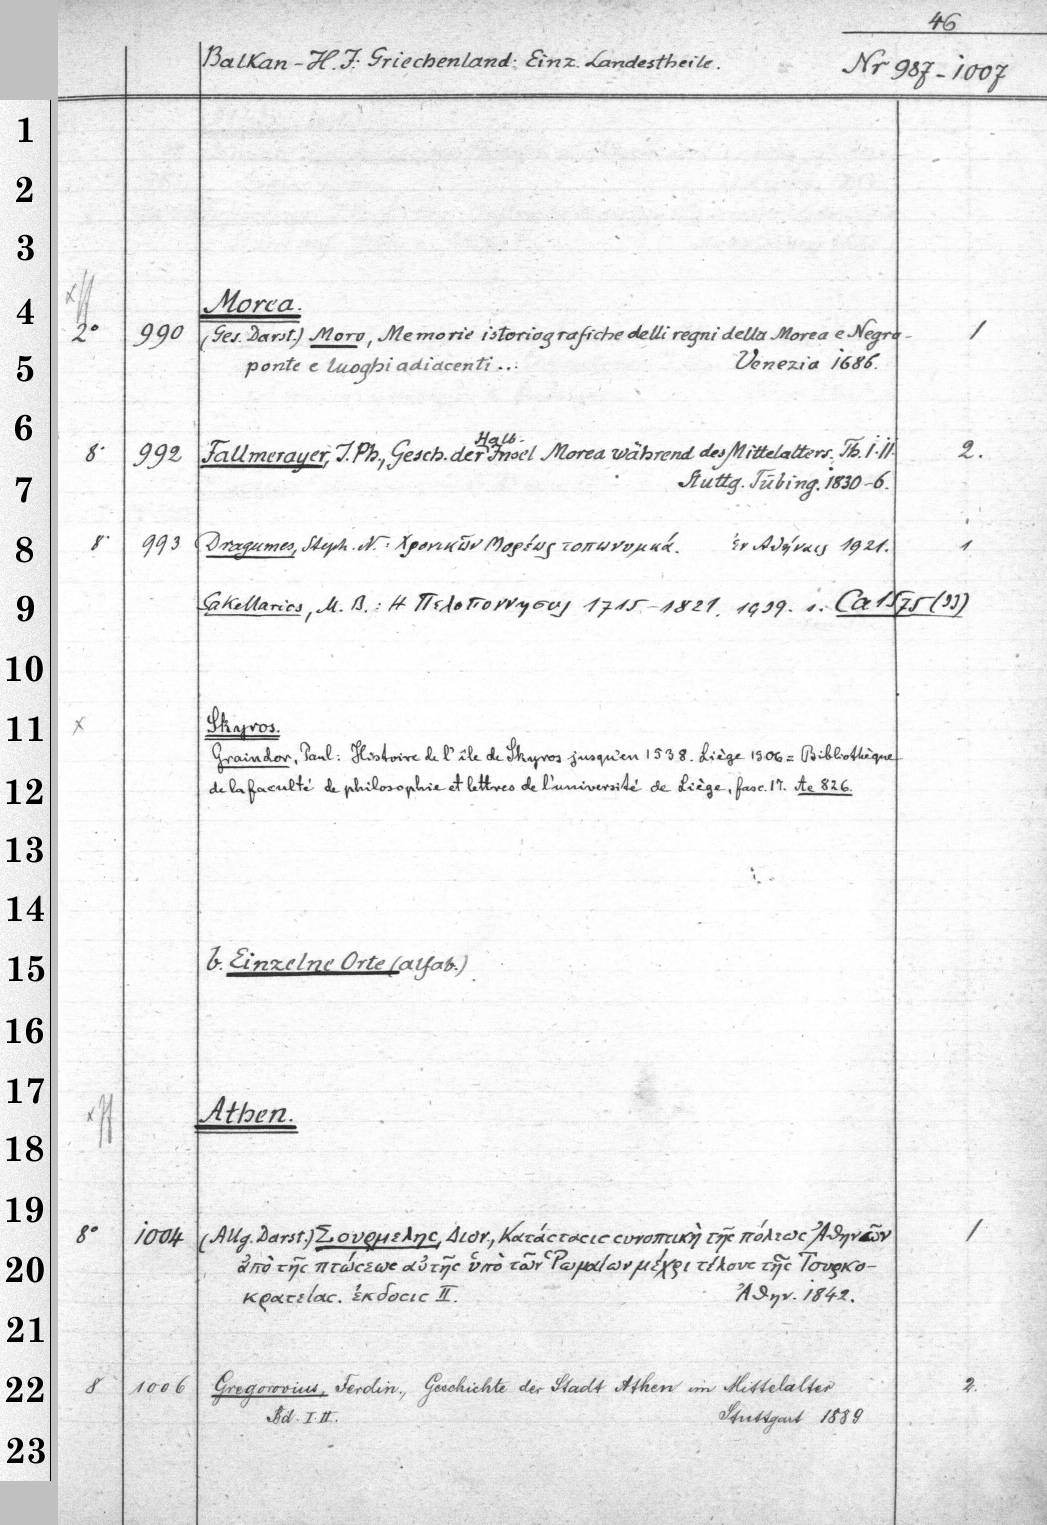 46
Balkan - H. J. Griechenland: Einz. Landestheile. Nr 987-1007
1
2
3
4 Morea.
2° 990 (Ges. Darst.) Moro, Memorie istoriografiche delli regni della Morea e Negro- 1
5 ponte e luoghi adiacenti ... Venezia 1686.
6 Halb-
8° 992 Fallmerayer, J. Ph., Gesch. der Insel Morea während des Mittelalters. Th. I. II. 2.
7 Stuttg. Tübing. 1830-6.
8 8° 993 Dragumes, Steph. N.: Χρονικῶν Μορέως τοπωνυμικά. ἐν Ἀθήναις 1921. 1
9 Sakellarios, M. B.: Η Πελοπόννησος 1715-1821. 1939. 1. Ca 1575 (33)
10
11 x Skyros.
Graindor, Paul: Histoire de l'île de Skyros jusqu'en 1538. Liège 1906 = Bibliothèque
12 de la faculté de philosophie et lettres de l'université de Liège, fasc. 17. Ae 826.
13
14
15 b. Einzelne Orte (alfab.)
16
17 Athen.
18
19 8° 1004 (Allg. Darst.) Σουρμελης, Διον., Κατάστασις συνοπτικὴ τῆς πόλεως Ἀθηνῶν 1
20 ἀπὸ τῆς πτώσεως αὐτῆς ὑπὸ τῶν Ῥωμαίων μέχρι τέλους τῆς Τουρκο-
κρατείας. ἐκδοσις II. Ἀθην. 1842.
21
22 8 1006 Gregorovius, Ferdin., Geschichte der Stadt Athen im Mittelalter 2.
Bd. I. II. Stuttgart 1889
23